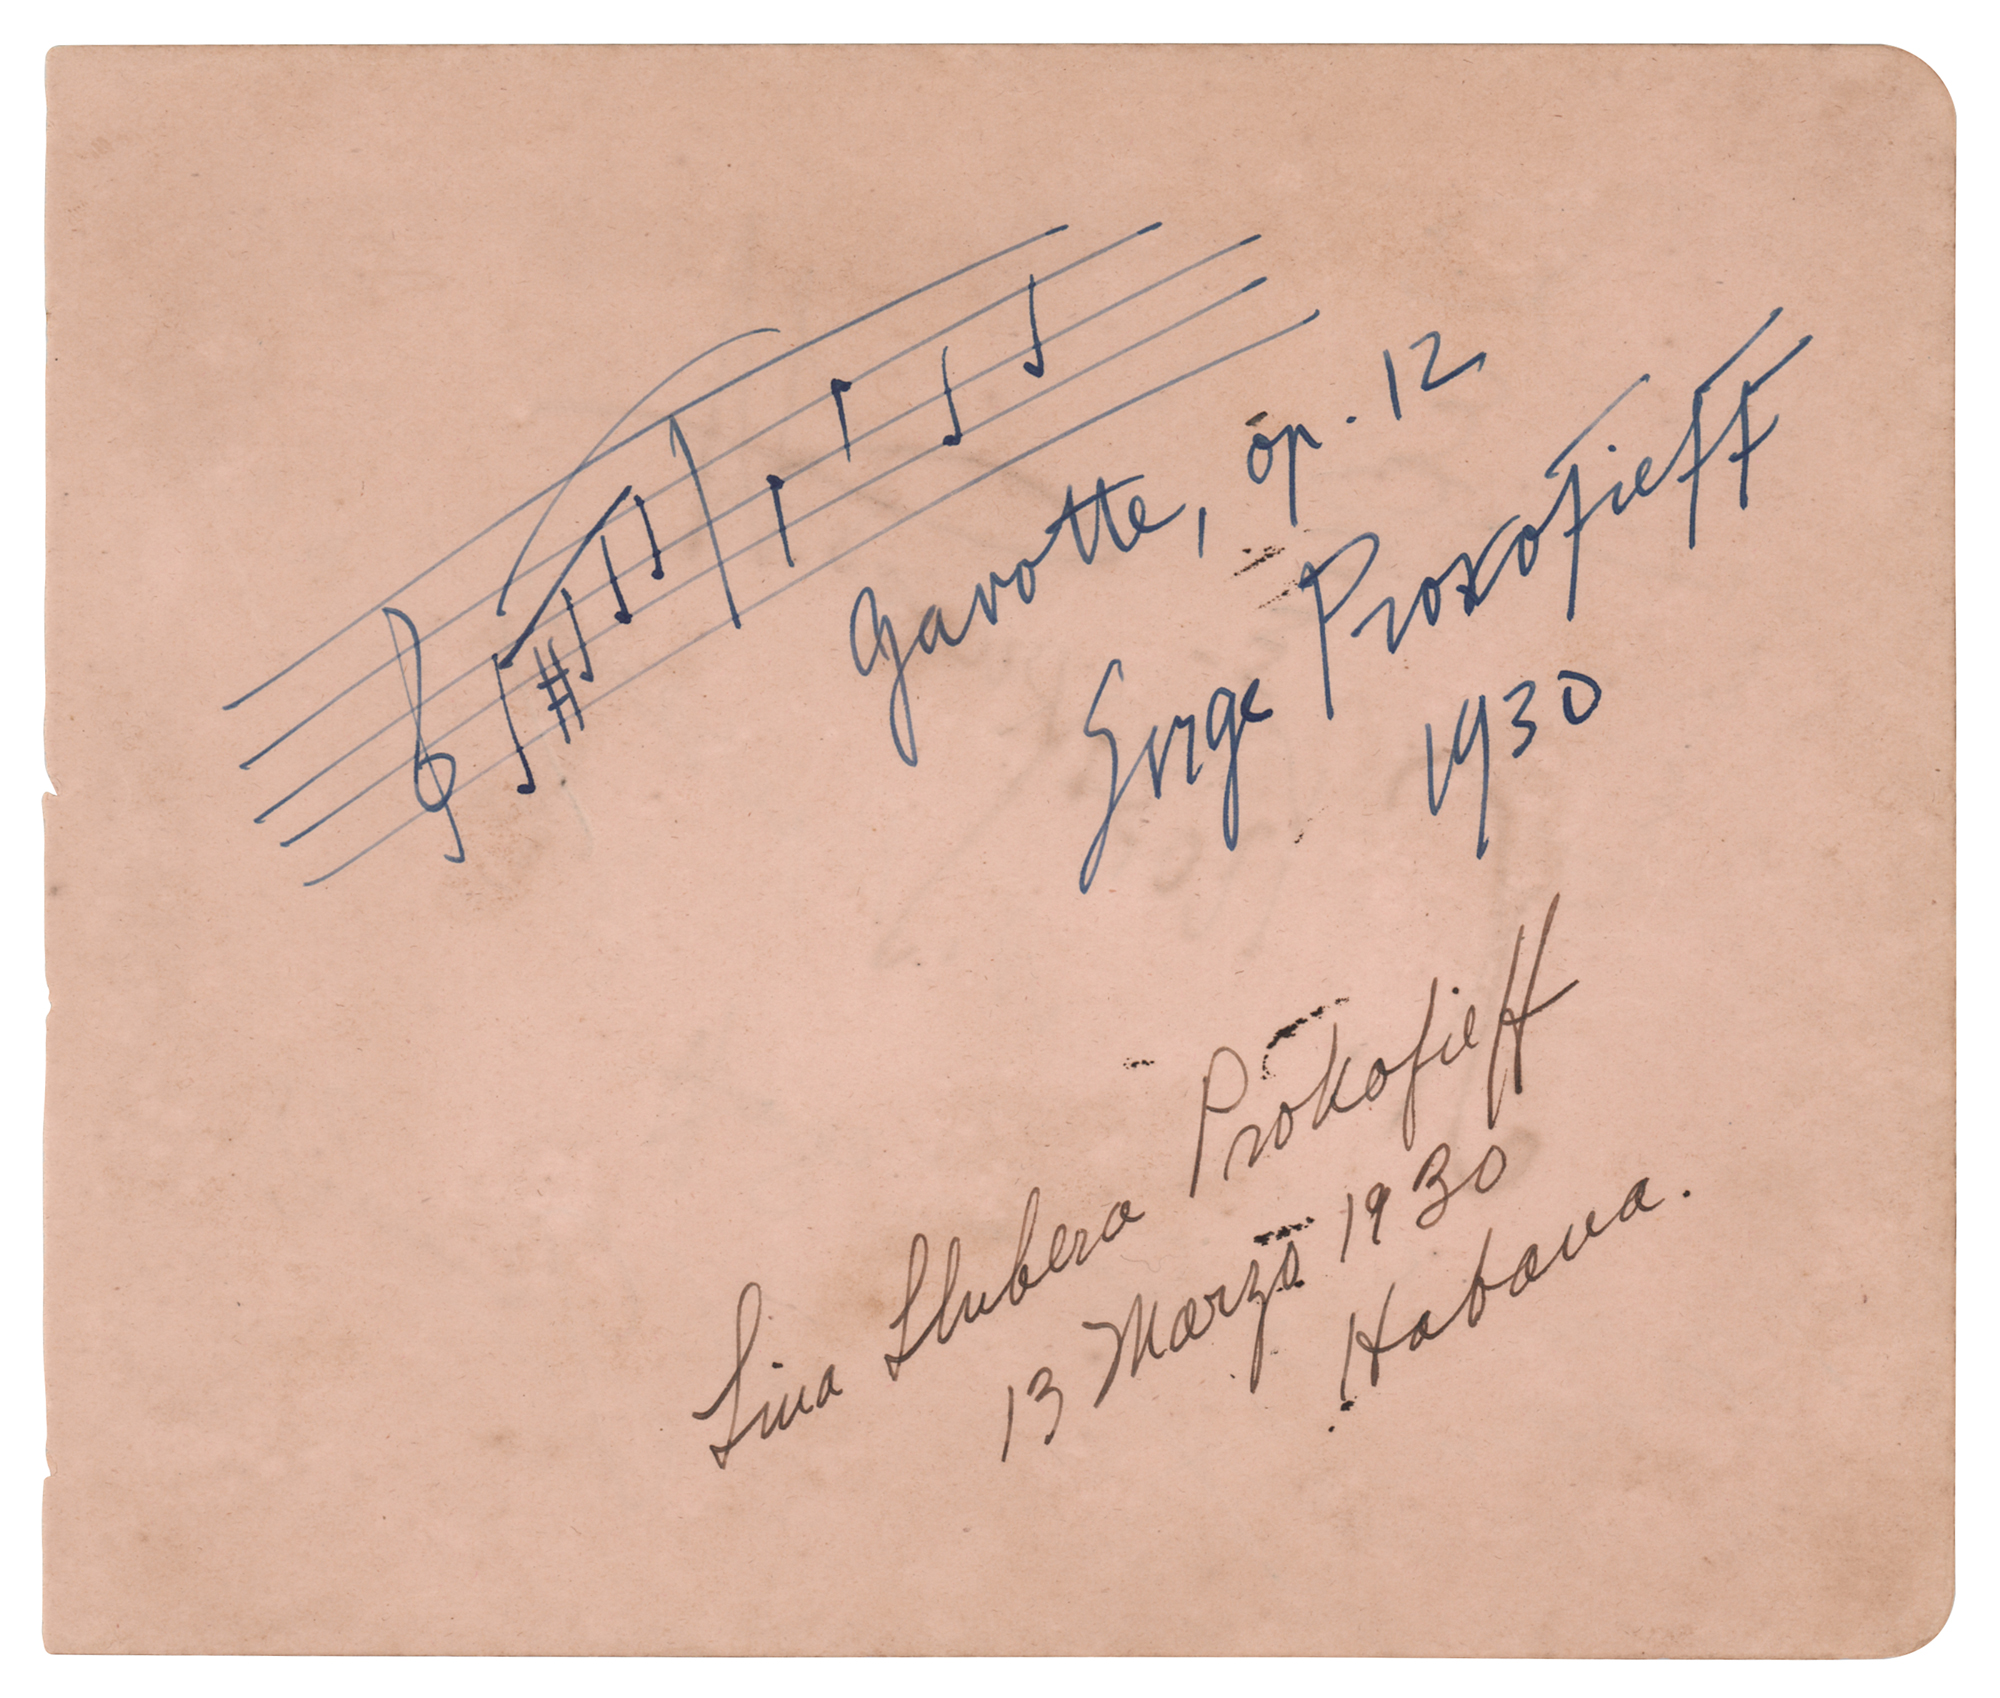 Gavotte, op. 12
Serge Prokofieff
1930
Lina Llubera Prokofieff
13 Marzo 1930
Habana.